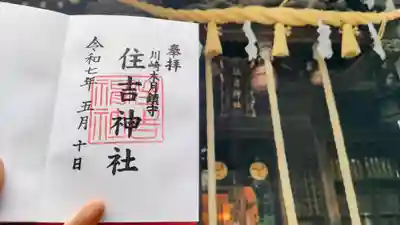 奉拝
川崎木月鎮守
住吉神社
令和七年 五月 十日